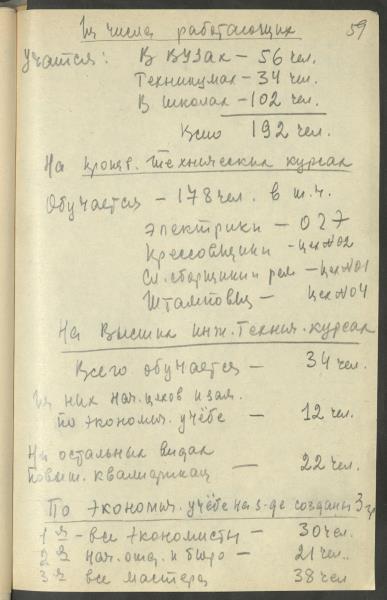 59
Из числа работающих
учатся: В ВУЗах – 56 чел.
Техникумах – 34 чел.
В школах – 102 чел.
Всего 192 чел.
На произв. техническия курсах
Обучается – 178 чел. в т.ч.
Электрики – 027
Крессовщики – цех №02
Сл. сборщики рем – цех №01
Штамповщ – цех №04
На Высших инж. технич. курсах
Всего обучается – 34 чел.
Из них нач. цехов и зам.
по экономич. учёбе – 12 чел.
На остальных видах
повыш. квалификац – 22 чел.
По экономич. учёбе на з-де созданы 3 гр
1я – все экономисты – 30 чел.
2я нач. отд. и бюро – 21 чел.
3я все мастера 38 чел